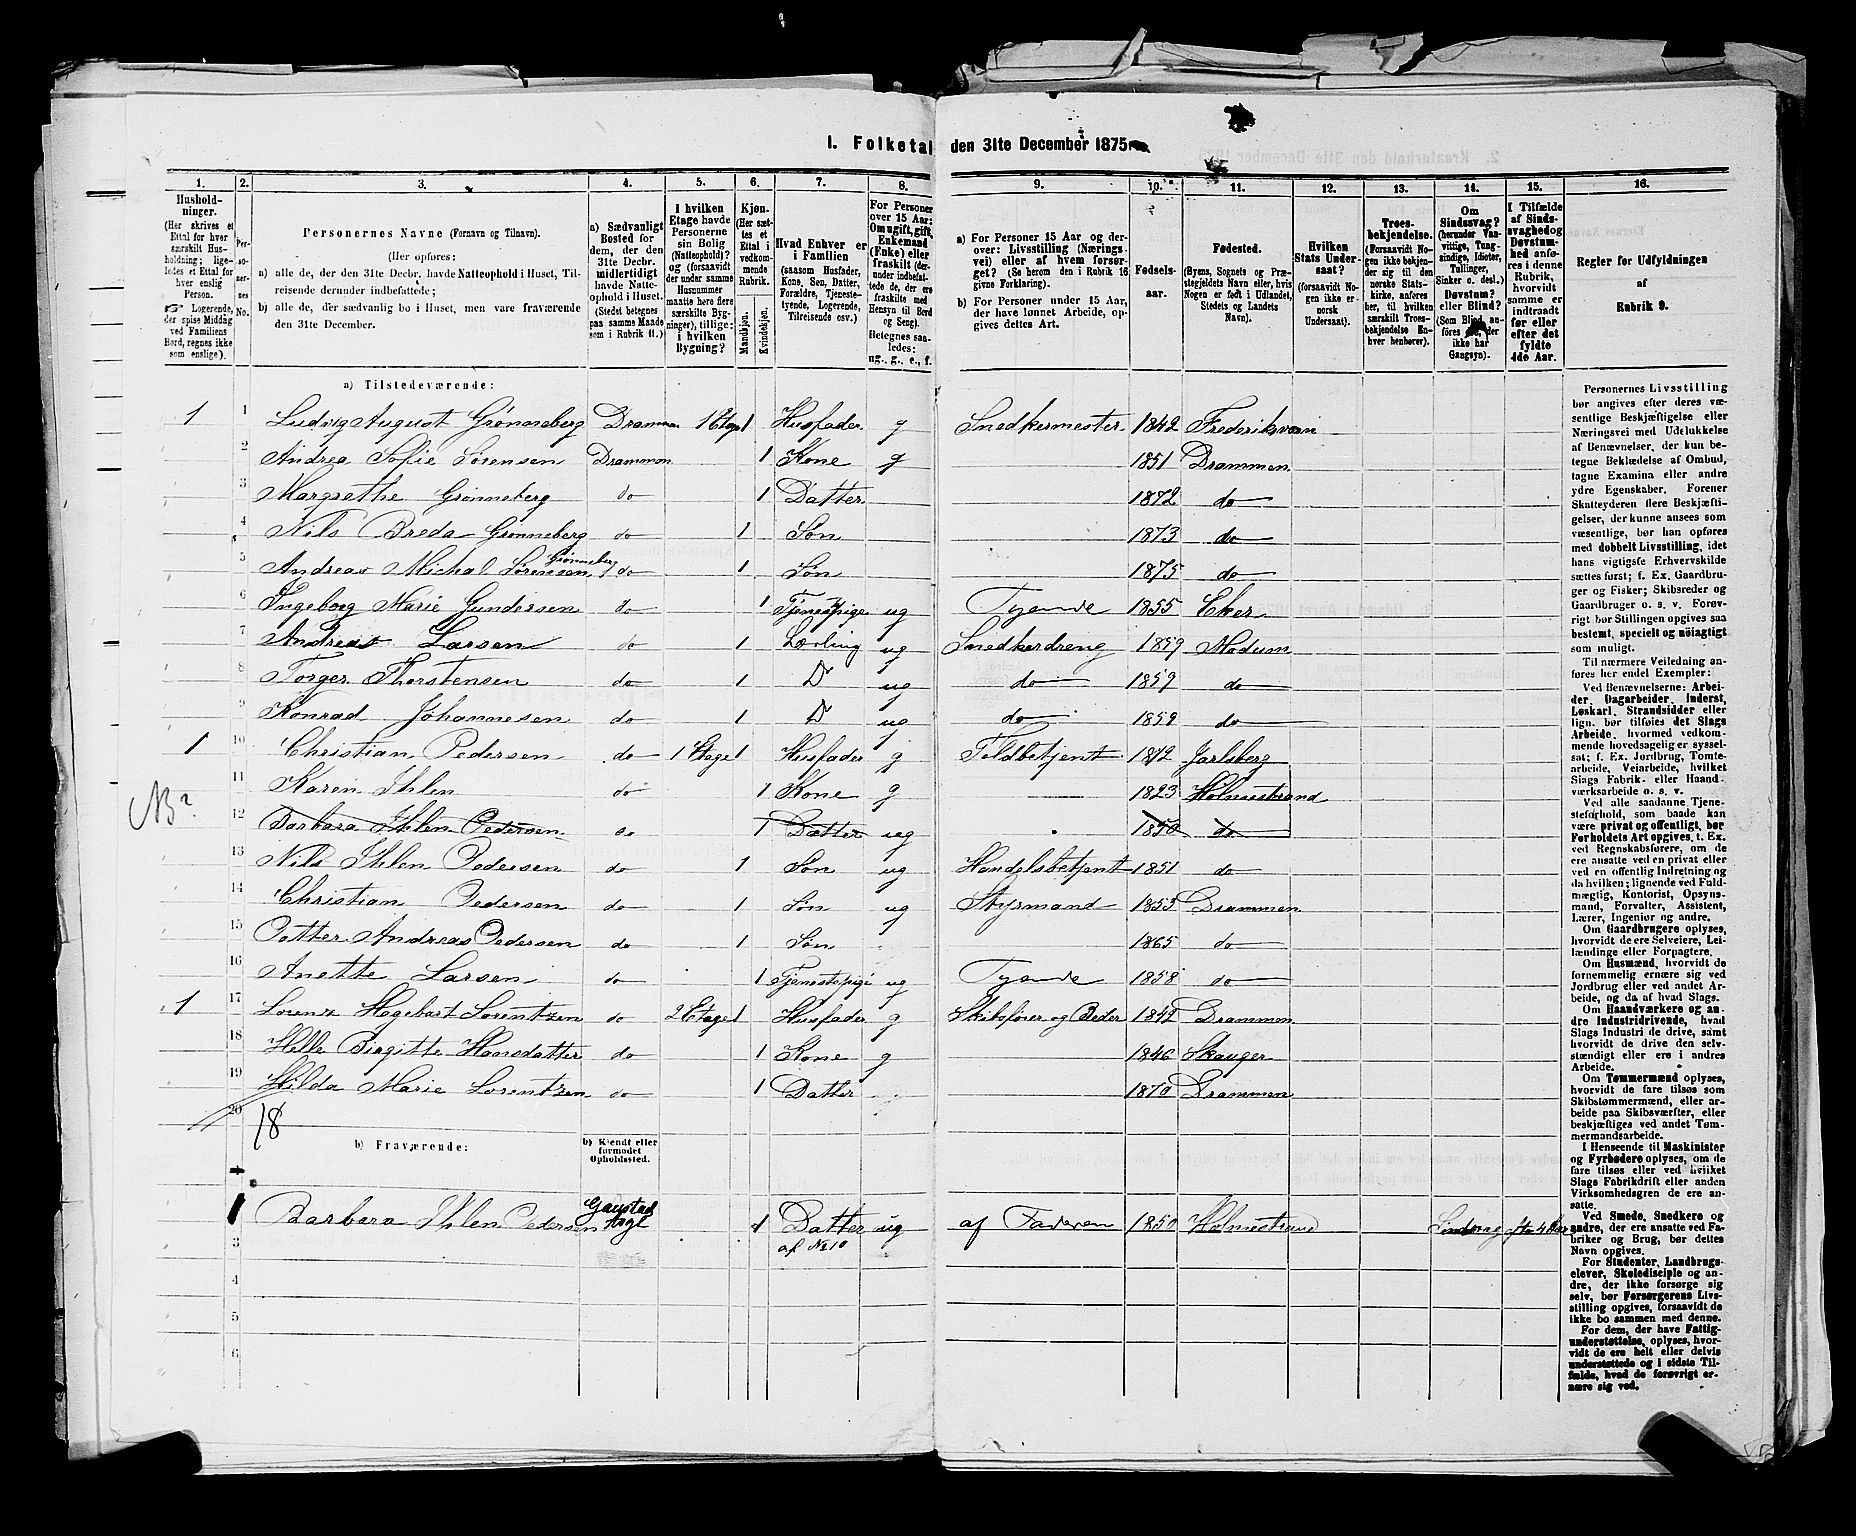 I. Folketal den 31te December 1875
1. 2. 3. 4. 5. 6. 7. 8. 9. 10. 11. 12. 13. 14. 15. 16.
Husholdninger. (Her skrives et Ettal for hver særskilt Husholdning; ligeledes et Ettal for hver enslig Person. Logerende, der spise Middag ved Familiens Bord, regnes ikke som enslige).
Personernes No.
Personernes Navne (Fornavn og Tilnavn).
(Her opføres:
a) alle de, der den 31te Decbr. havde Natteophold i Huset, Tilreisende derunder indbefattede;
b) alle de, der sædvanlig bo i Huset, men vare fraværende den 31te December.
a) Sædvanligt Bosted for dem, der den 31te Decbr. midlertidigt havde Natteophold i Huset. (Stedet betegnes paa samme Maade som i Rubrik 11.)
I hvilken Etage havde Personerne sin Bolig (Natteophold)? og (forsaavidt der under samme Husnummer maatte være flere særskilte Bygninger), tillige: i hvilken Bygning?
Kjøn. (Her sættes et Ettal i vedkommende Rubrik. Mandkjøn. Kvindekjøn.
Hvad Enhver er i Familien (saasom Husfader, Kone, Søn, Datter, Forældre, Tjenestetyende, Logerende, Tilreisende osv.)
For Personer over 15 Aar: Om ugift, gift, Enkemand (Enke) eller fraskilt (derunder indbefattede de, der ere fraskilte med Hensyn til Bord og Seng). Betegnes saaledes: ug., g., e., f.
a) For Personer 15 Aar og derover: Livsstilling (Næringsvei) eller af hvem forsørget? (Se herom den i Rubrik 16 givne Forklaring).
b) For Personer under 15 Aar, der have lønnet Arbeide, opgives dettes Art.
Fødselsaar.
Fødested. (Byens, Sognets og Præstegjeldets Navn eller, hvis Nogen er født i Udlandet, Stedets og Landets Navn).
Hvilken Stats Undersaat? (forsaavidt Nogen ikke er norsk Undersaat).
Troesbekjendelse. (Forsaavidt Nogen ikke bekjender sig til den norske Statskirke, anføres her, til hvilken særskilt Troesbekjendelse Enhver henhører).
Om Sindssvag? (herunder Vanvittige, Tungsindige, Idioter, Tullinger, Sinker o. desl.) Døvstum? eller Blind? (Som Blind anføres de, der ikke har Gangsyn).
I Tilfælde af Sindssvaghed og Døvstumhed anføres i denne Rubrik, hvorvidt samme er indtraadt før eller efter det fyldte 4de Aar.
Regler for Udfyldningen af Rubrik 9.
a) Tilstedeværende:
1 1 Ludvig August Grønneberg Drammen 1 Etage 1 Husfader g Snedkermester 1842 Frederiksværn
2 Andrea Sofie Sørensen Drammen 1 Kone g 1851 Drammen
3 Margrethe Grønneberg do 1 Datter 1872 do
4 Nils Breda Grønneberg do 1 Søn 1873 do
5 Andreas Michal Sørensen Grønneberg do 1 Søn 1875 do
6 Ingeborg Marie Gundersen do 1 Tjenestpige ug Tyende 1855 Eker
7 Andreas Larsen do 1 Lærling ug Snedkerdreng 1859 Modum
8 Torger Thorstensen do 1 D ug do 1859 do
9 Konrad Johannesen do 1 D ug do 1859 do
1 10 Christian Pedersen do 1 Etage 1 Husfader g Toldbetjent 1812 Jarlsberg
11 Karen Ihlen do 1 Kone g 1823 Holmestrand
NB?
12 Barbara Ihlen Pedersen do 1 Datter ug 1850 do
13 Nils Ihlen Pedersen do 1 Søn ug Handelsbetjent 1851 do
14 Christian Pedersen do 1 Søn ug Styrmand 1853 Drammen
15 Petter Andreas Pedersen do 1 Søn 1865 do
16 Anette Larsen do 1 Tjenestepige ug Tyende 1858 do
1 17 Lorenz Hagebart Lorentzen do 2 Etage 1 Husfader g Skibsfører og Reder 1842 Drammen
18 Helle Birgitte Hansdatter do 1 Kone g 1846 Skauger
19 Hilda Marie Lorentzen do 1 Datter 1870 Drammen
20
18
b) Fraværende: b) Kjendt eller formodet Opholdssted.
1 Barbara Ihlen Pedersen Gaustad Asyl 1 Datter af No 10 ug af Faderen 1850 Holmestrand Sindssvag efter 4 Aar
3
4
5
6
Personernes Livsstilling
bør angives efter deres væ-
sentlige Beskjæftigelse eller
Næringsvei med Udelukkelse
af Benævnelser, der kun be-
tegne Beklædelse af Ombud,
tagne Examina eller andre
ydre Egenskaber. Forener
Skatteyderen flere Beskjæfti-
gelser, der kunne ansees som
væsentlige, bør han opføres
med dobbelt Livsstilling, idet
hans vigtigste Erhvervskilde
sættes først; f. Ex. Gaardbru-
ger og Fisker; Skibsreder og
Gaardbruger o. s. v. Forøv-
rigt bør Stillingen opgives saa
bestemt, specielt og nøiagtigt
som muligt.
Til nærmere Veiledning an-
føres her endel Exempler:
Ved Benævnelserne: Arbei-
der, Dagarbeider, Inderst,
Løskarl, Strandsidder eller
lign. bør tilføies det Slags
Arbeide, hvormed vedkom-
mende hovedsagelig er syssel-
sat; f. Ex. Jordbrug, Tomte-
arbeide, Veiarbeide, hvilket
Slags Fabrik- eller Haand-
værksarbeide o. s. v.
Ved alle saadanne Tjene-
steforhold, som baade kan
være privat og offentligt, bør
Forholdets Art opgives, t. Ex.
ved Regnskabsførere, om de
ere ansatte ved en privat eller
ved en offentlig Indretning og
da hvilken; lignende ved Fuld-
mægtig, Kontorist, Opsyns-
mand, Forvalter, Assistent,
Lærer, Ingeniør og andre.
Om Gaardbrugere oplyses,
hvorvidt de ere Selveiere, Lei-
lændinge eller Forpagtere.
Om Husmænd, hvorvidt de
fornemmelig ernære sig ved
Jordbrug eller ved andet Ar-
beide, og da af hvad Slags.
Om Haandværkere og an-
dre Industridrivende, hvad
Slags Industri de drive, samt
hvorvidt de drive den selv-
stændigt eller ere i andres
Arbeide.
Om Tømmermænd oplyses,
hvorvidt de fare tilsøs som
Skibstømmermænd, eller ar-
beide paa Skibsværfter, eller
beskjæftiges ved andet Tøm-
mermandsarbeide.
I Henseende til Maskinister
og Fyrbødere oplyses, om de
fare tilsøs eller ved hvilket
Slags Fabrikdrift eller anden
Virksomhedsgren de ere an-
satte.
Ved Smede, Snedkere og
andre, der ere ansatte ved Fa-
briker og Brug, bør dettes
Navn opgives.
For Studenter, Landbrugs-
elever, Skoledisciple og an-
dre, der ikke forsørge sig
selv, bør Forsørgerens Livs-
stilling opgives, forsaavidt de
ikke bo sammen med denne.
For dem, der have Fattig-
understøttelse, oplyses, hvor-
vidt de ere helt eller delvis
understøttede og i sidste Til-
fælde, hvad de forøvrigt er-
nære sig ved.